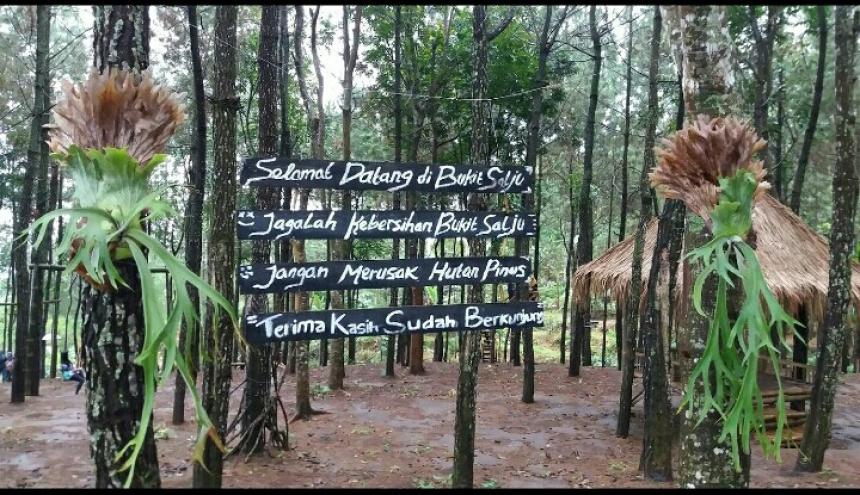 Selamat Datang di Bukit Salju
Jagalah Kebersihan Bukit Salju
Jangan Merusak Hutan Pinus
Terima Kasih Sudah Berkunjung